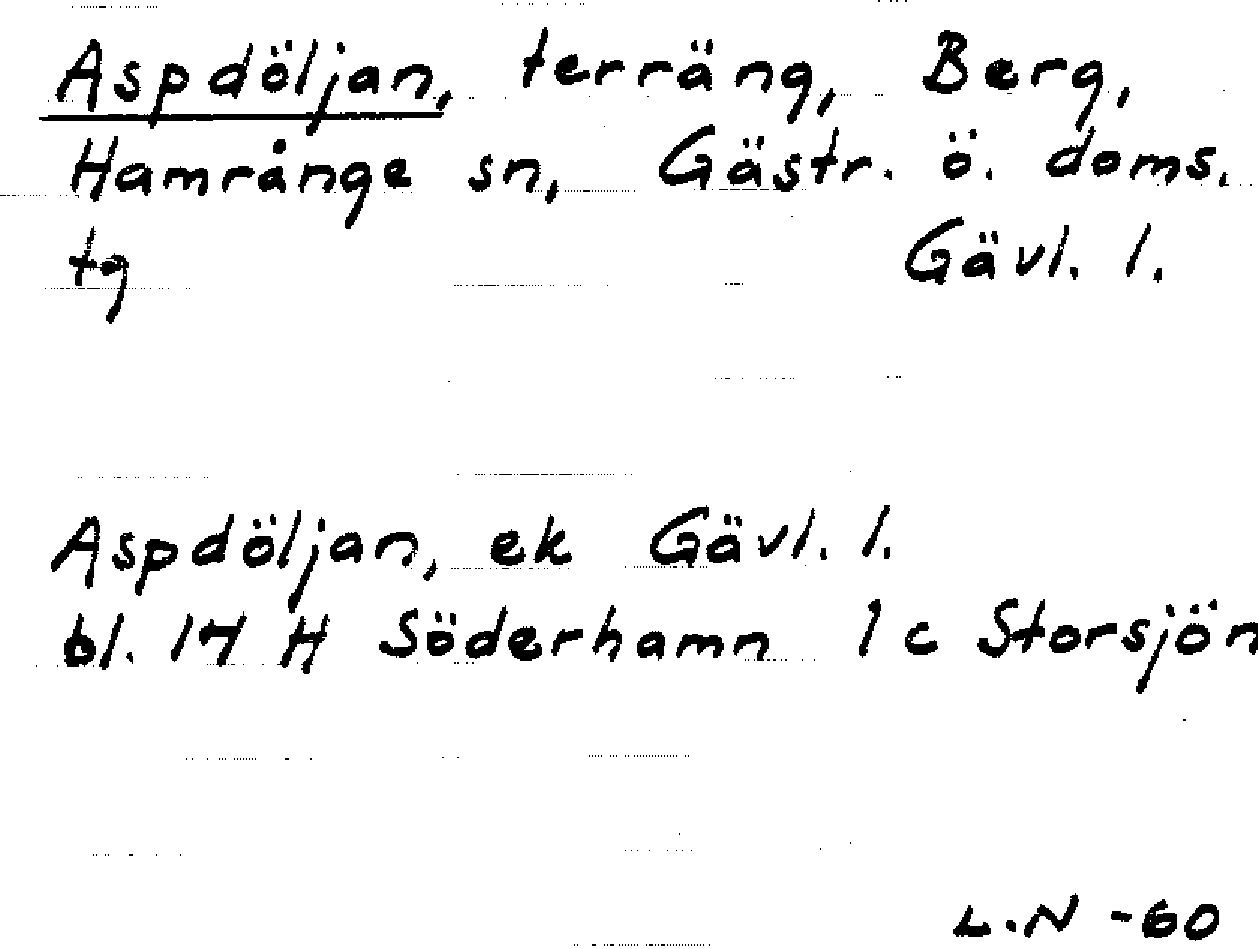 Aspdöljan, terräng, Berg,
Hamrånge sn, Gästr. ö. doms.
tg Gävl. l.
Aspdöljan, ek Gävl. l.
bl. 14 H Söderhamn 1 c Storsjön
L.N -60